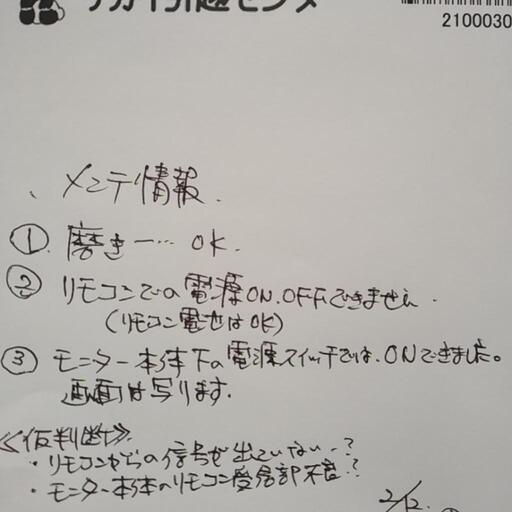 サカイ引越センター
2100030
メンテ情報.
① 磨きー… OK.
② リモコンでの電源ON.OFFできません.
(リモコン電池はOK)
③ モニター本体下の電源スイッチでは、ONできました。
画面は写ります.
≪仮判断≫
・リモコンからの信号が出ていない…?
・モニター本体のリモコン受信部不良?
2/12.